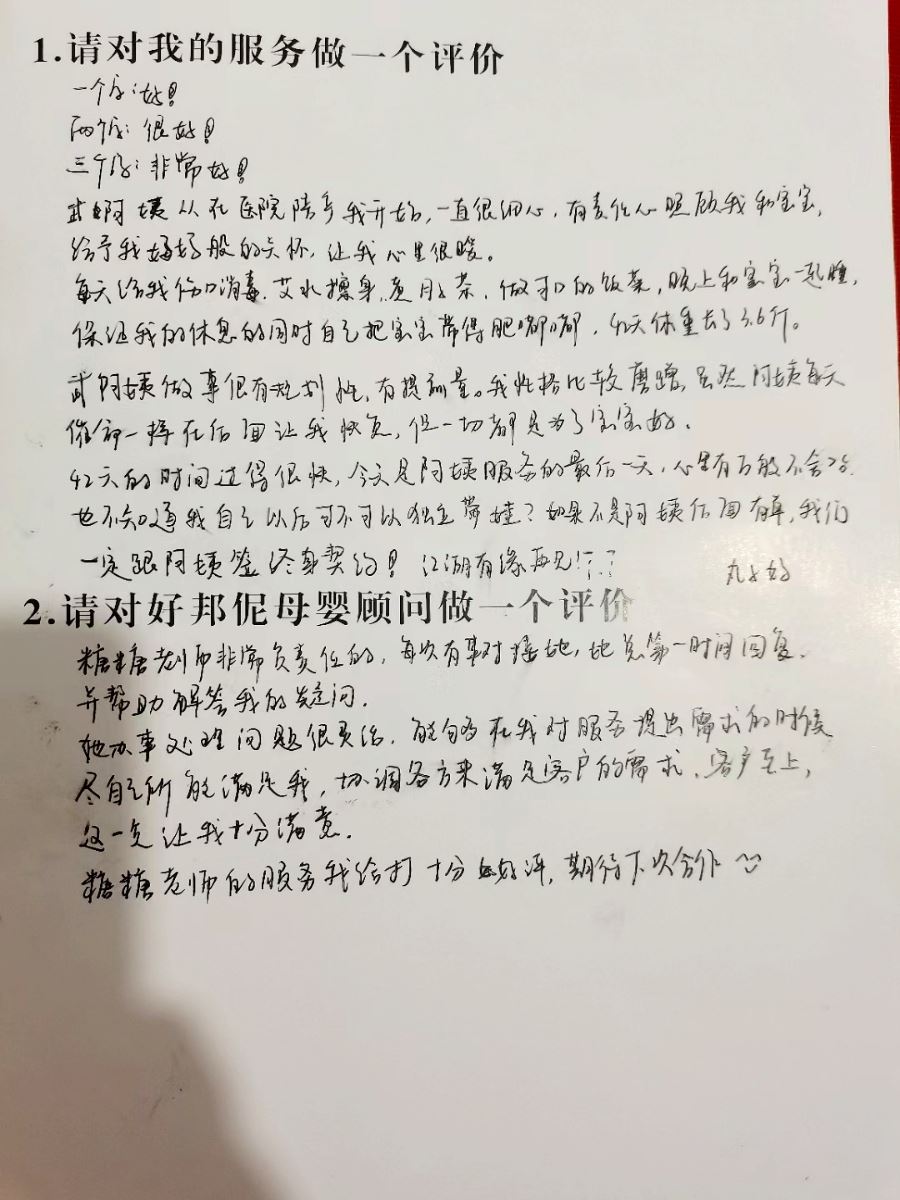 1.请对我的服务做一个评价
一个字:好!
两个字:很好!
三个字:非常好!
武阿姨从在医院陪产我开始,一直很细心,有责任心照顾我和宝宝,
给予我妈妈般的关怀,让我心里很暖。
每天给我伤口消毒,艾水擦身,煮月子茶,做可口的饭菜,晚上和宝宝一起睡,
保证我的休息的同时自己把宝宝带得肥嘟嘟,42天体重长了3.6斤。
武阿姨做事很有规划性,有提前量。我性格比较磨蹭,虽然阿姨每天
催命一样在后面让我快点,但一切都是为了宝宝好。
42天的时间过得很快,今天是阿姨服务的最后一天,心里有万般不舍
也不知道我自己以后可不可以独立带娃?如果不是阿姨后面有单,我们
一定跟阿姨签终身契约!江湖有缘再见!
2.请对好邦伲母婴顾问做一个评价
糖糖老师非常负责任的,每次有事对接她,她总第一时间回复,
并帮助解答我的疑问。
她办事处理问题很灵活,能够在我对服务提出需求的时候
尽自己所能满足我,协调各方来满足客户的需求,客户至上,
这一点让我十分满意。
糖糖老师的服务我给打十分好评,期待下次合作